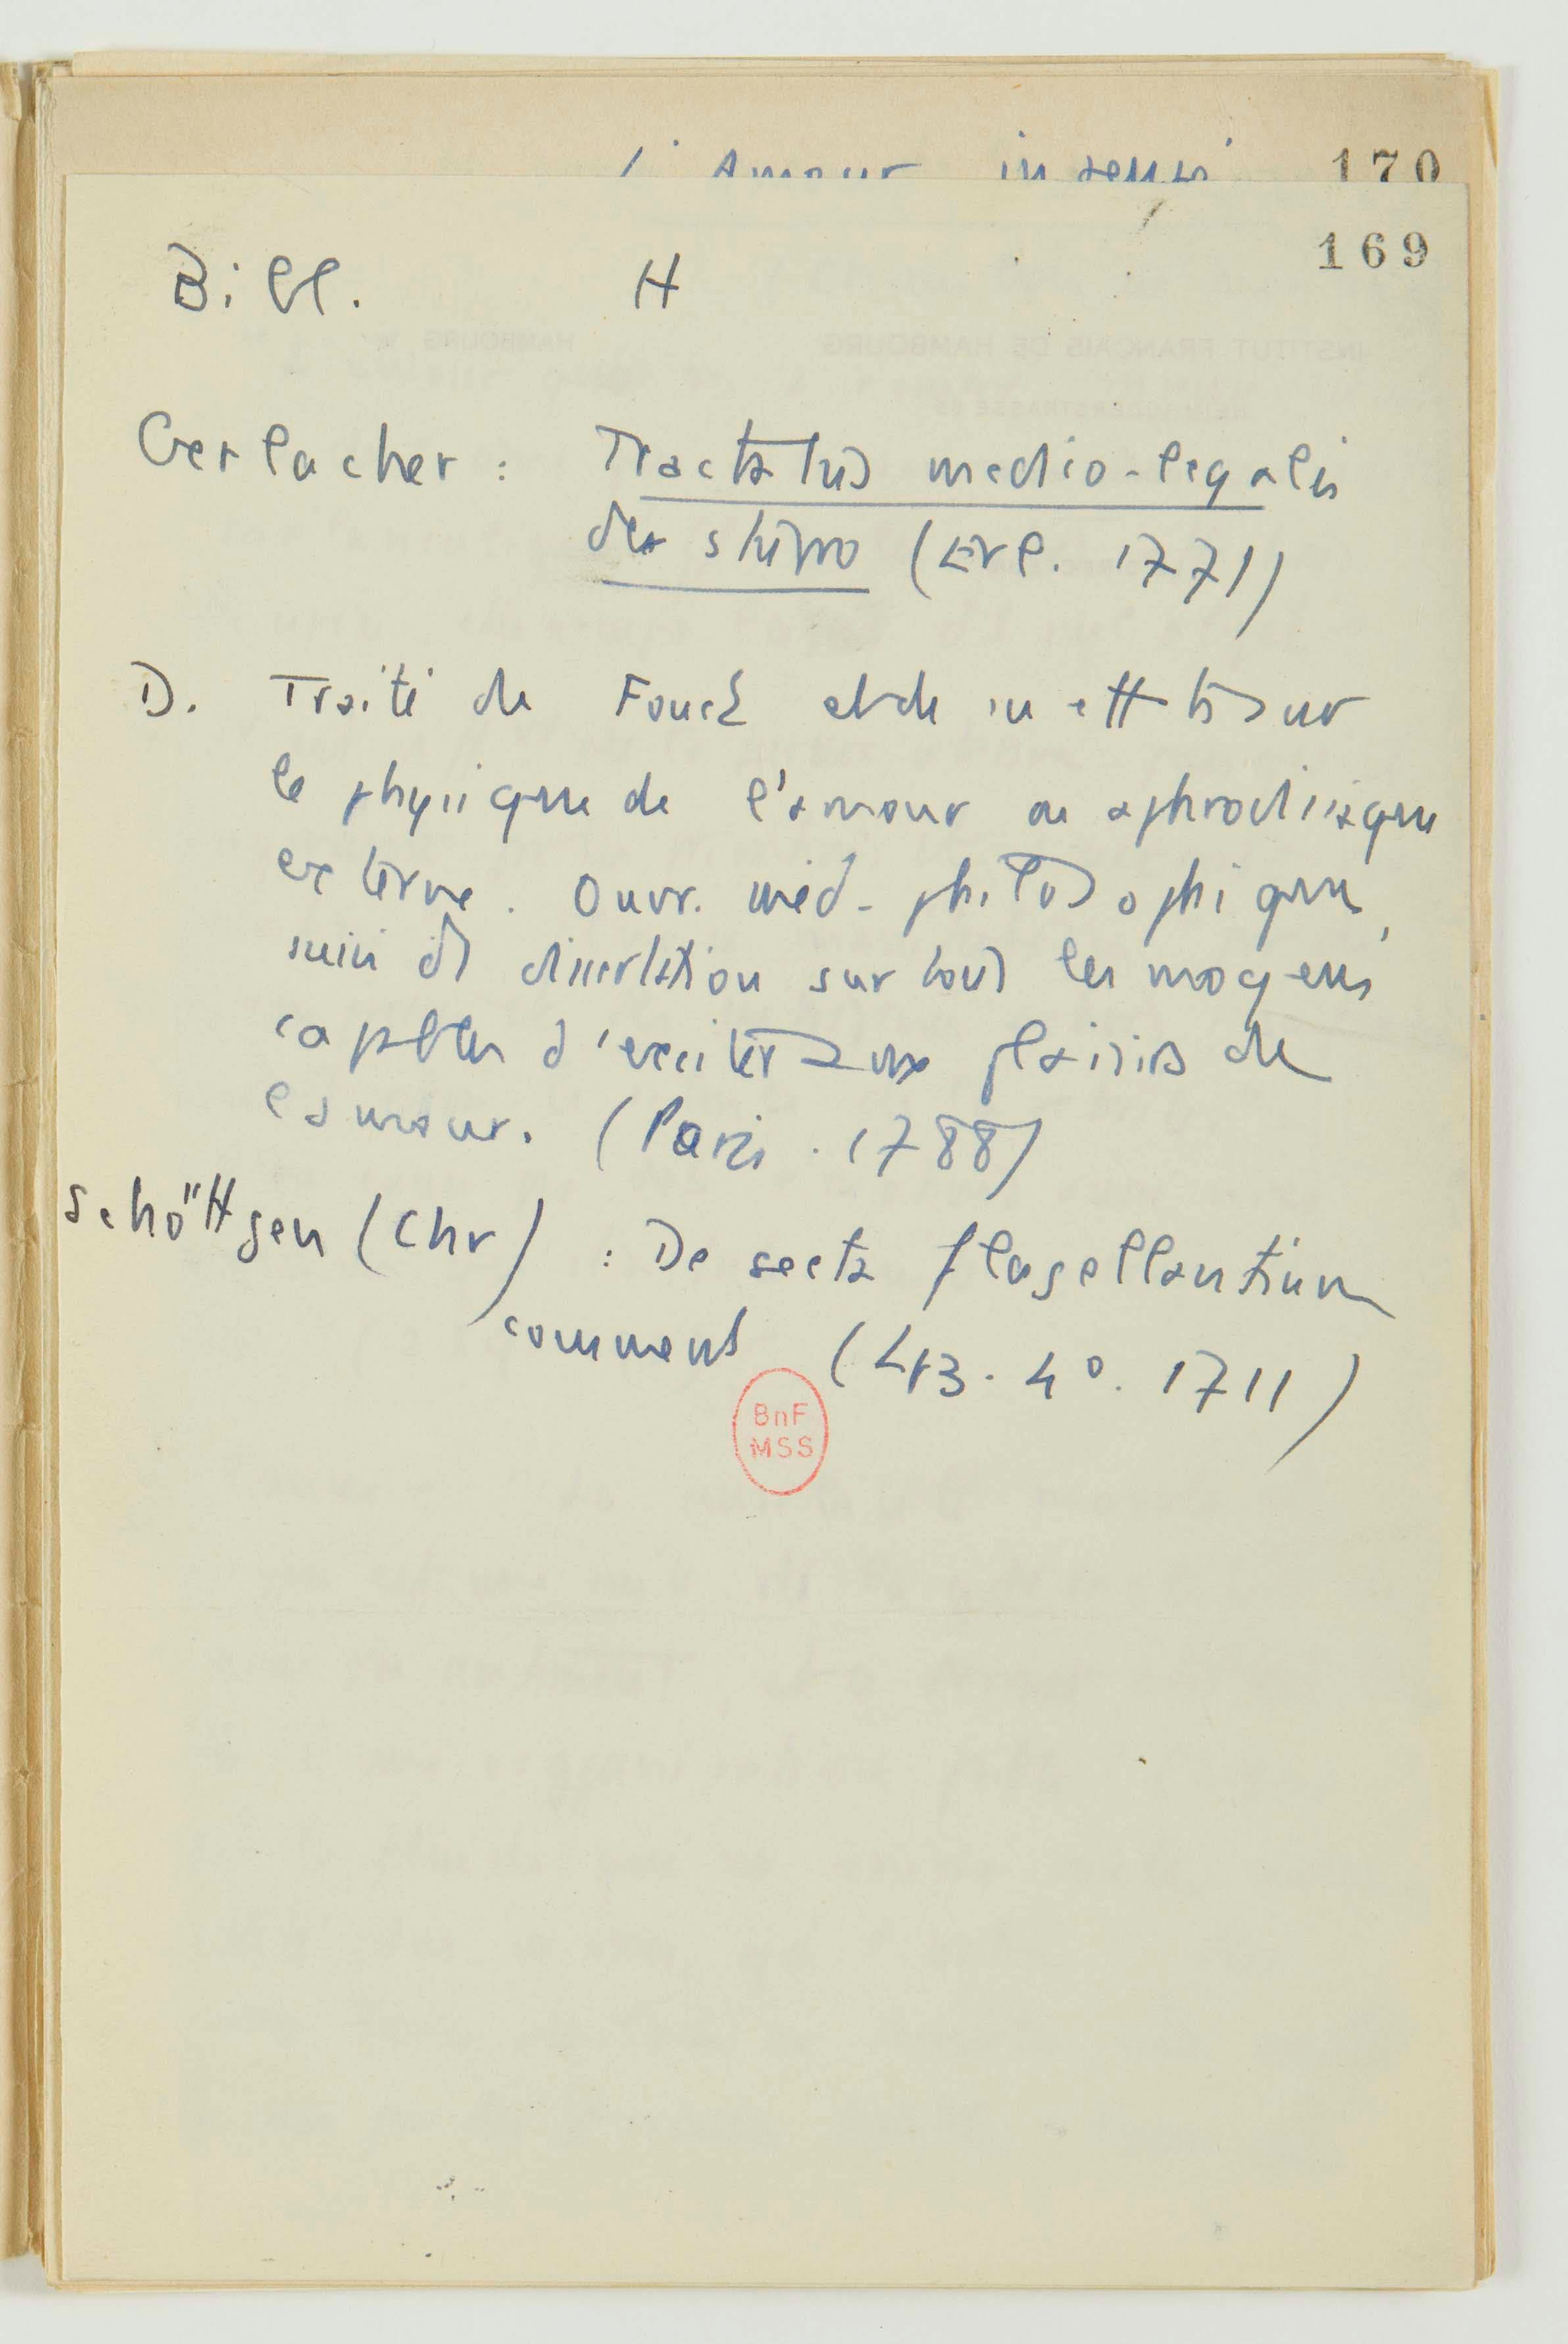 170
169
Bibl. H
Gerlacher : Tractatus medio-legalis
de stupro (Erl. 1771)
D. Traité de Fouet et de
le physique de l'amour ou aphrodisiaque
externe. Ouvr. méd-philosophique,
suivi d' dissertation sur tous les moyens
capables d'exciter aux plaisirs de
l'amour. (Paris. 1788)
Schöttgen (Chr) : De secta flagellantium
comment (Lpz. 4°. 1711)
BnF
MSS